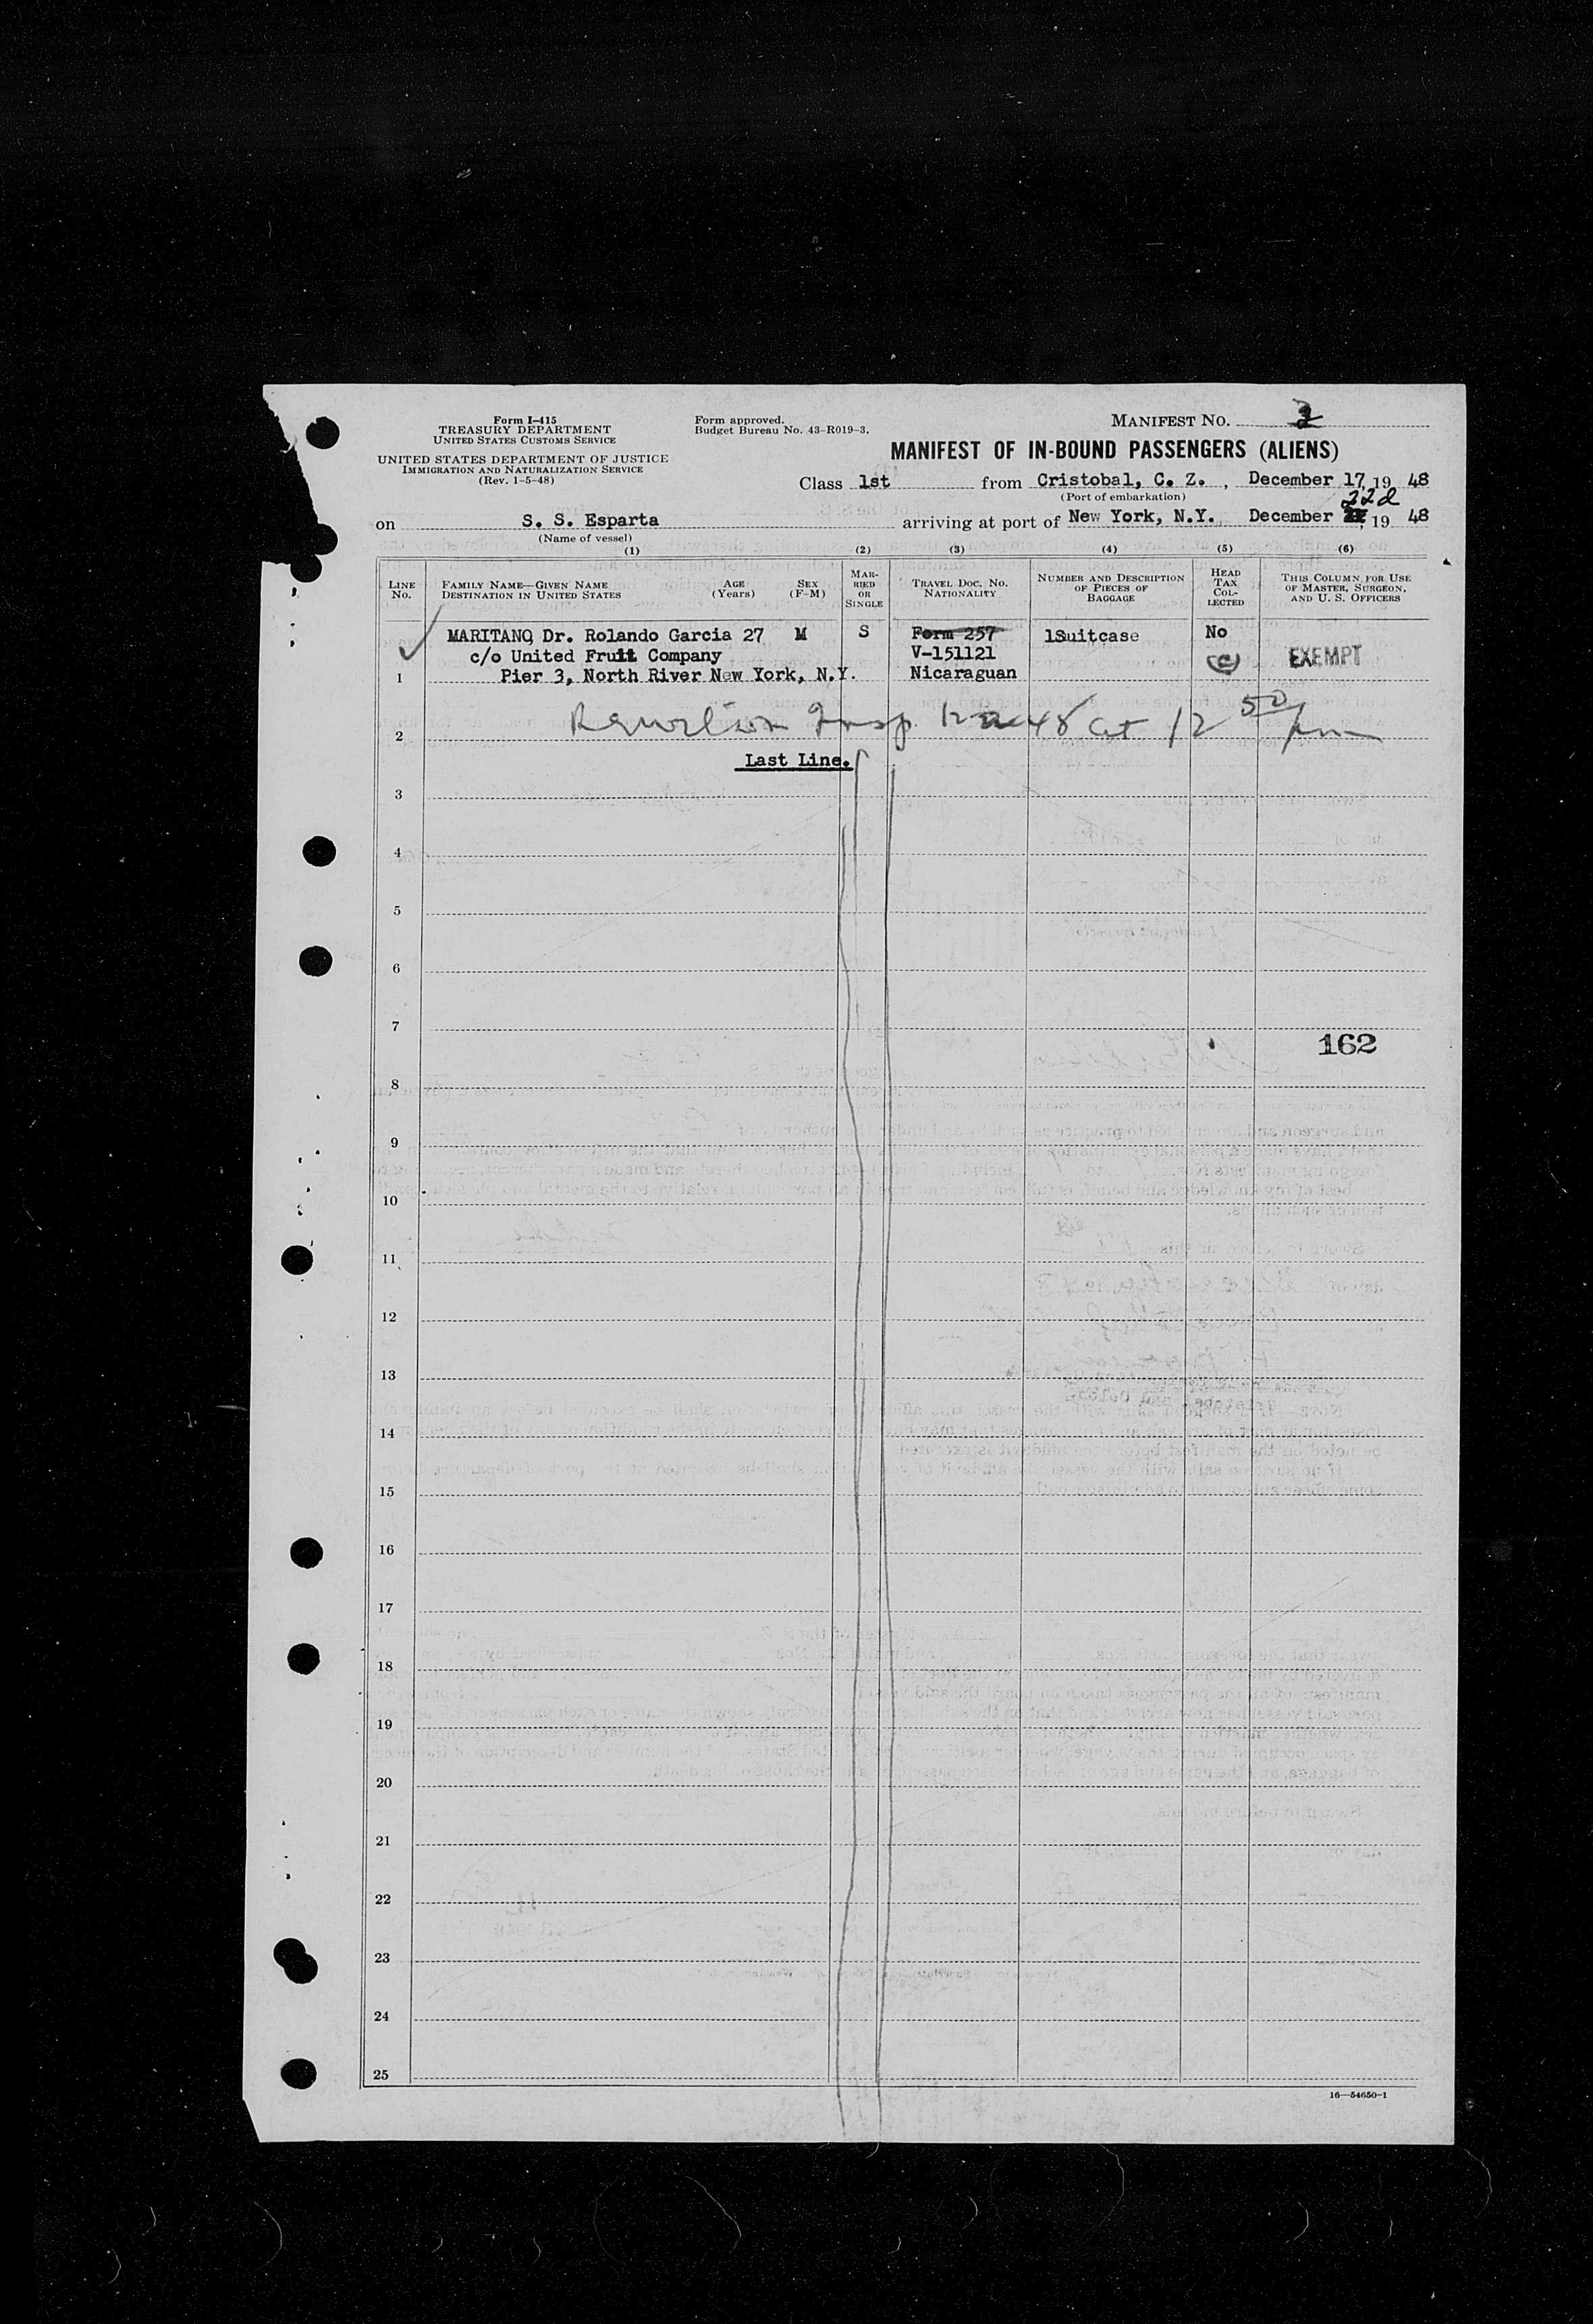 Form I-415
TREASURY DEPARTMENT
UNITED STATES CUSTOMS SERVICE
UNITED STATES DEPARTMENT OF JUSTICE
IMMIGRATION AND NATURALIZATION SERVICE
(Rev. 1-5-48)
Form approved.
Budget Bureau No. 43-R019-3.
MANIFEST NO.
MANIFEST OF IN-BOUND PASSENGERS (ALIENS)
Class 1st from Cristobal, C. Z., December 17, 19 48
(Port of embarkation)
on S. S. Esparta arriving at port of New York, N.Y. December 22d, 19 48
(Name of vessel)
(1) (2) (3) (4) (5) (6)
LINE No.
FAMILY NAME—GIVEN NAME
DESTINATION IN UNITED STATES
AGE (Years)
SEX (F-M)
MARRIED OR SINGLE
TRAVEL DOC. NO.
NATIONALITY
NUMBER AND DESCRIPTION OF PIECES OF BAGGAGE
HEAD TAX COLLECTED
THIS COLUMN FOR USE OF MASTER, SURGEON, AND U. S. OFFICERS
MARITANO Dr. Rolando Garcia 27 M S Form 257 1Suitcase No
c/o United Fruit Company V-151121 (C) EXEMPT
1 Pier 3, North River New York, N.Y. Nicaraguan
2 Insp. 12 48 at 12 50 pm
Last Line.
3
4
5
6
7
162
8
9
10
11
12
13
14
15
16
17
18
19
20
21
22
23
24
25
16—54650-1